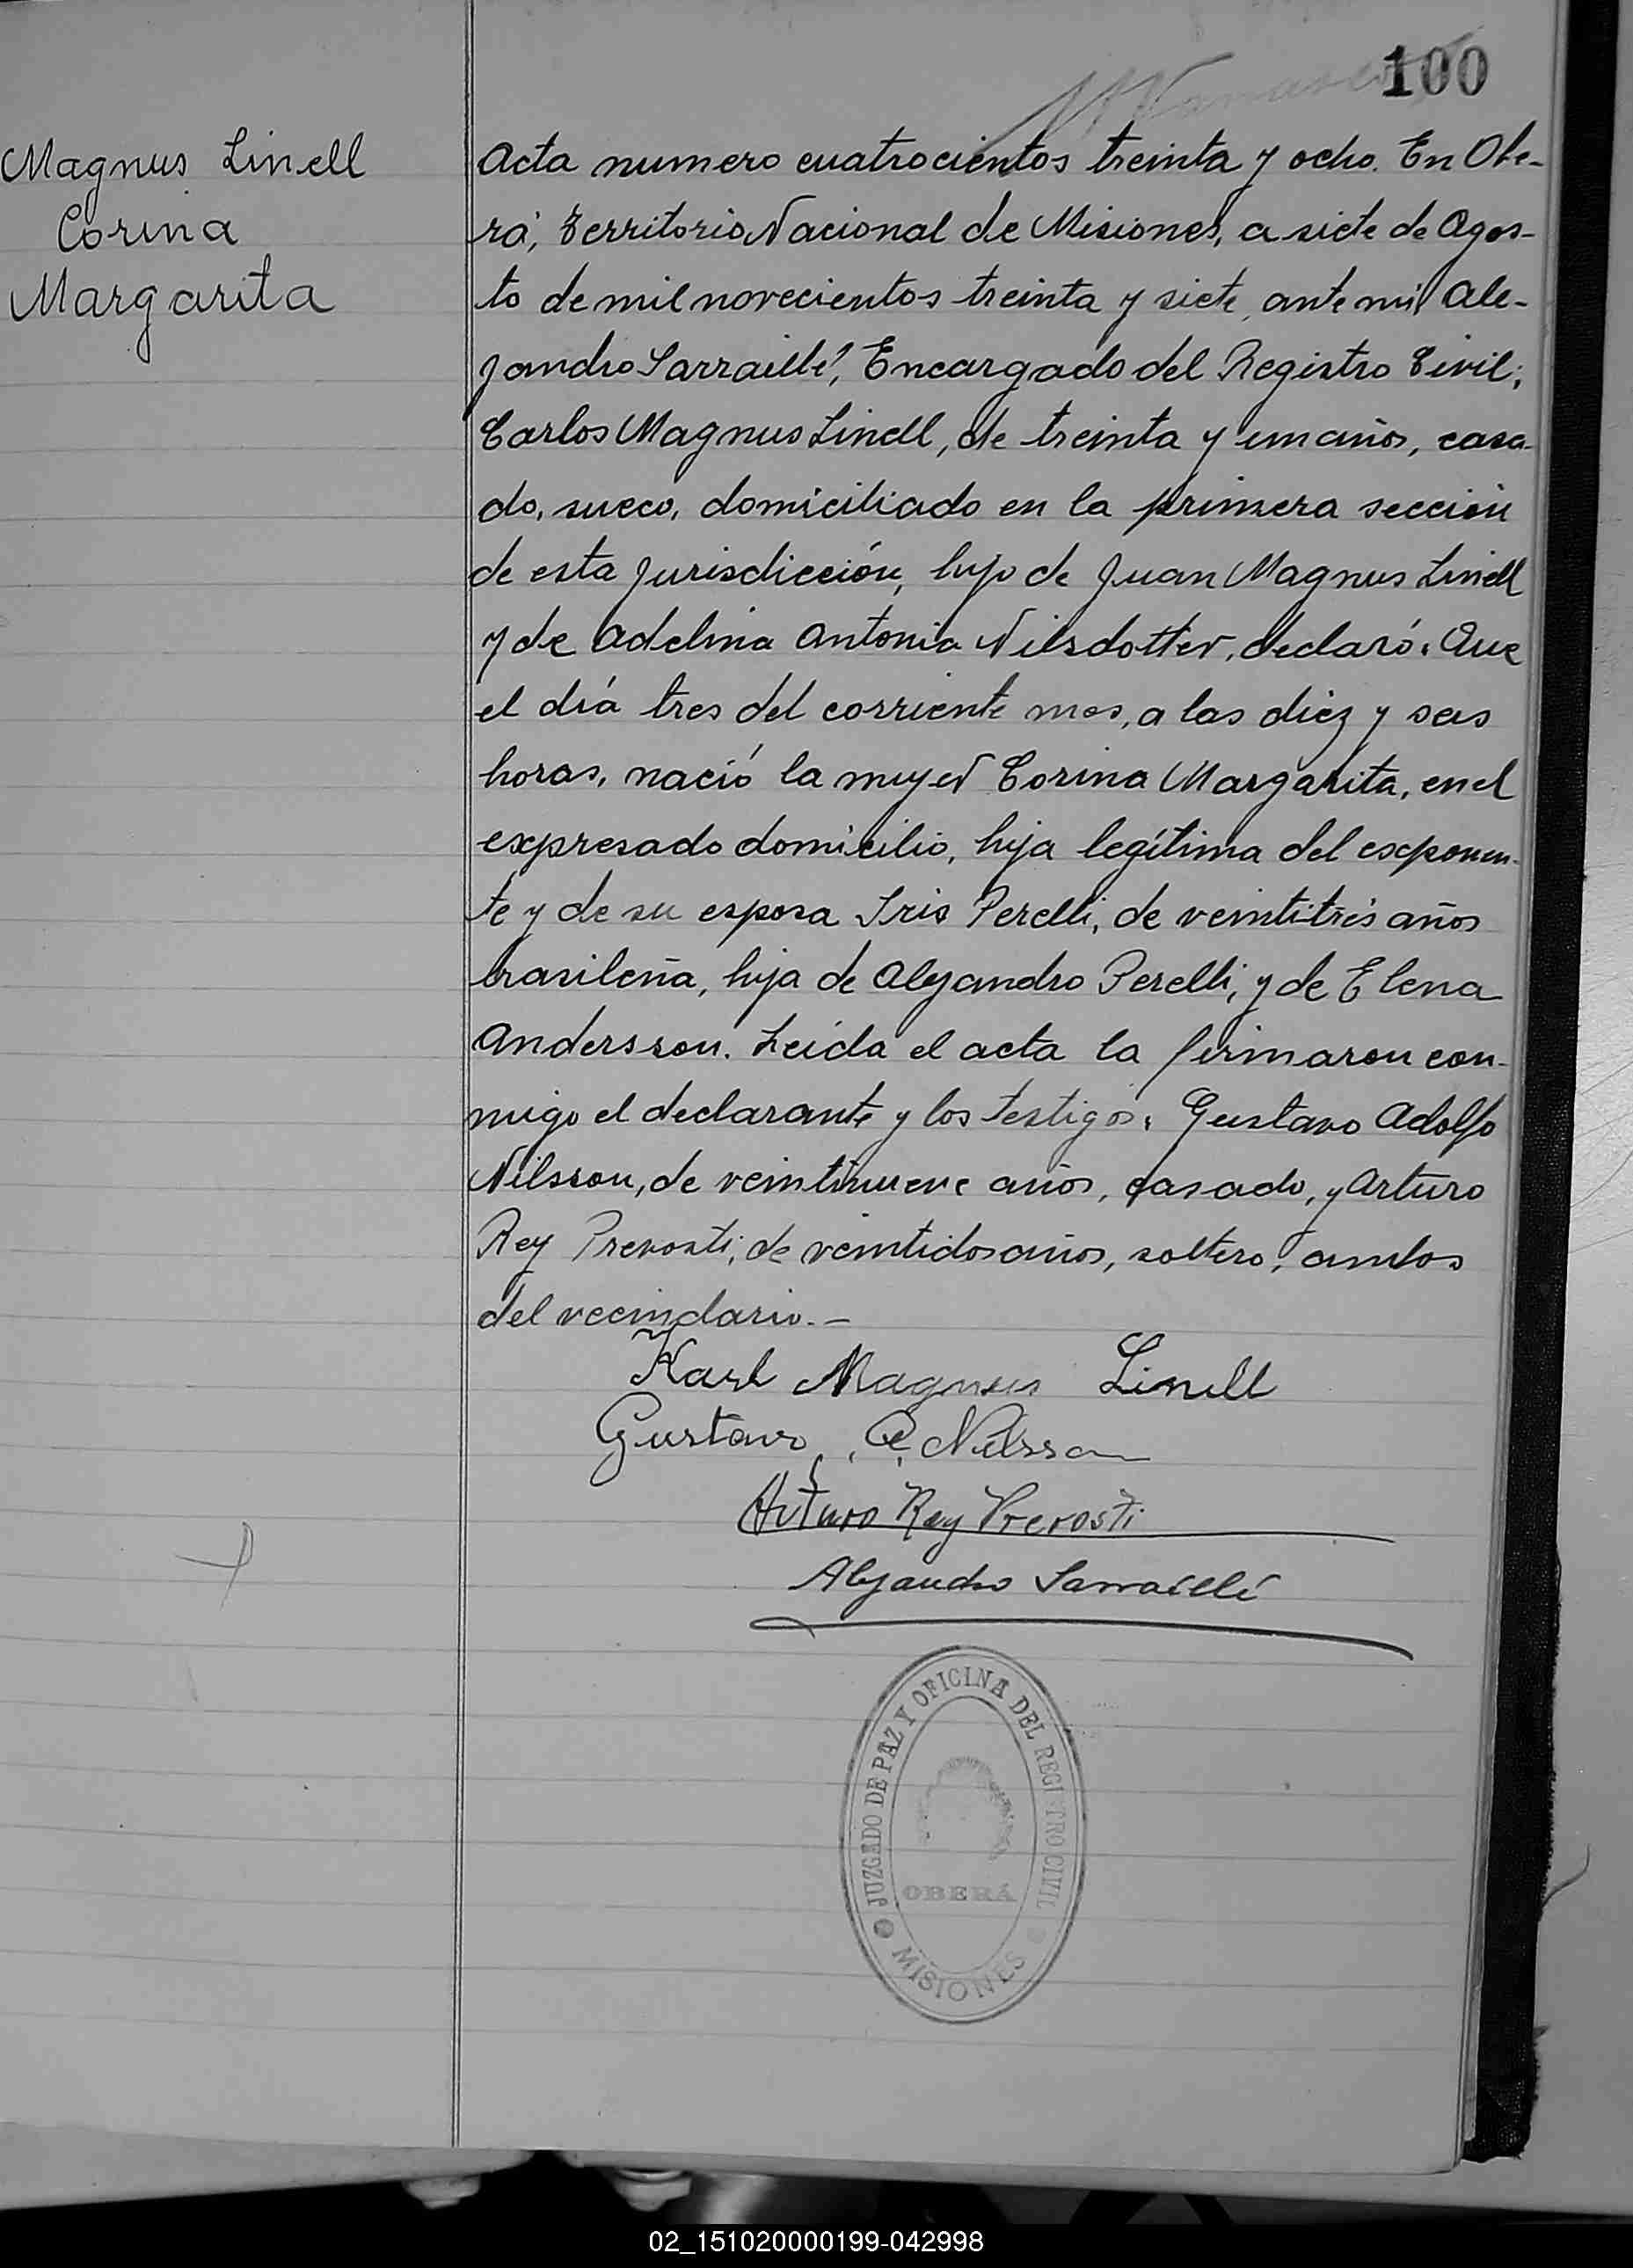 100
Magnus Linell
Corina
Margarita
Acta numero cuatrocientos treinta y ocho. En Obe-
rá, Territorio Nacional de Misiones, a siete de Agos-
to de mil novecientos treinta y siete, ante mi Ale-
jandro Sarraillé, Encargado del Registro Civil;
Carlos Magnus Linell, de treinta y un años, casa-
do, sueco, domiciliado en la primera sección
de esta jurisdicción, hijo de Juan Magnus Linell
y de Adelina Antonia Nilsdotter, declaró: Que
el día tres del corriente mes, a las diez y seis
horas, nació la mujer Corina Margarita, en el
expresado domicilio, hija legítima del exponen-
te y de su esposa Iris Perelli, de veintitrés años
brasileña, hija de Alejandro Perelli, y de Elena
Andersson. Leída el acta la firmaron con-
migo el declarante y los testigos: Gustavo Adolfo
Nilsson, de veintinueve años, casado, y Arturo
Rey Prevosti, de veintidos años, soltero, ambos
del vecindario.-
Karl Magnus Linell
Gustavo A. Nilsson
Arturo Rey Prevosti
Alejandro Sarraillé
JUZGADO DE PAZ Y OFICINA DEL REGISTRO CIVIL
OBERÁ
MISIONES
02_151020000199-042998